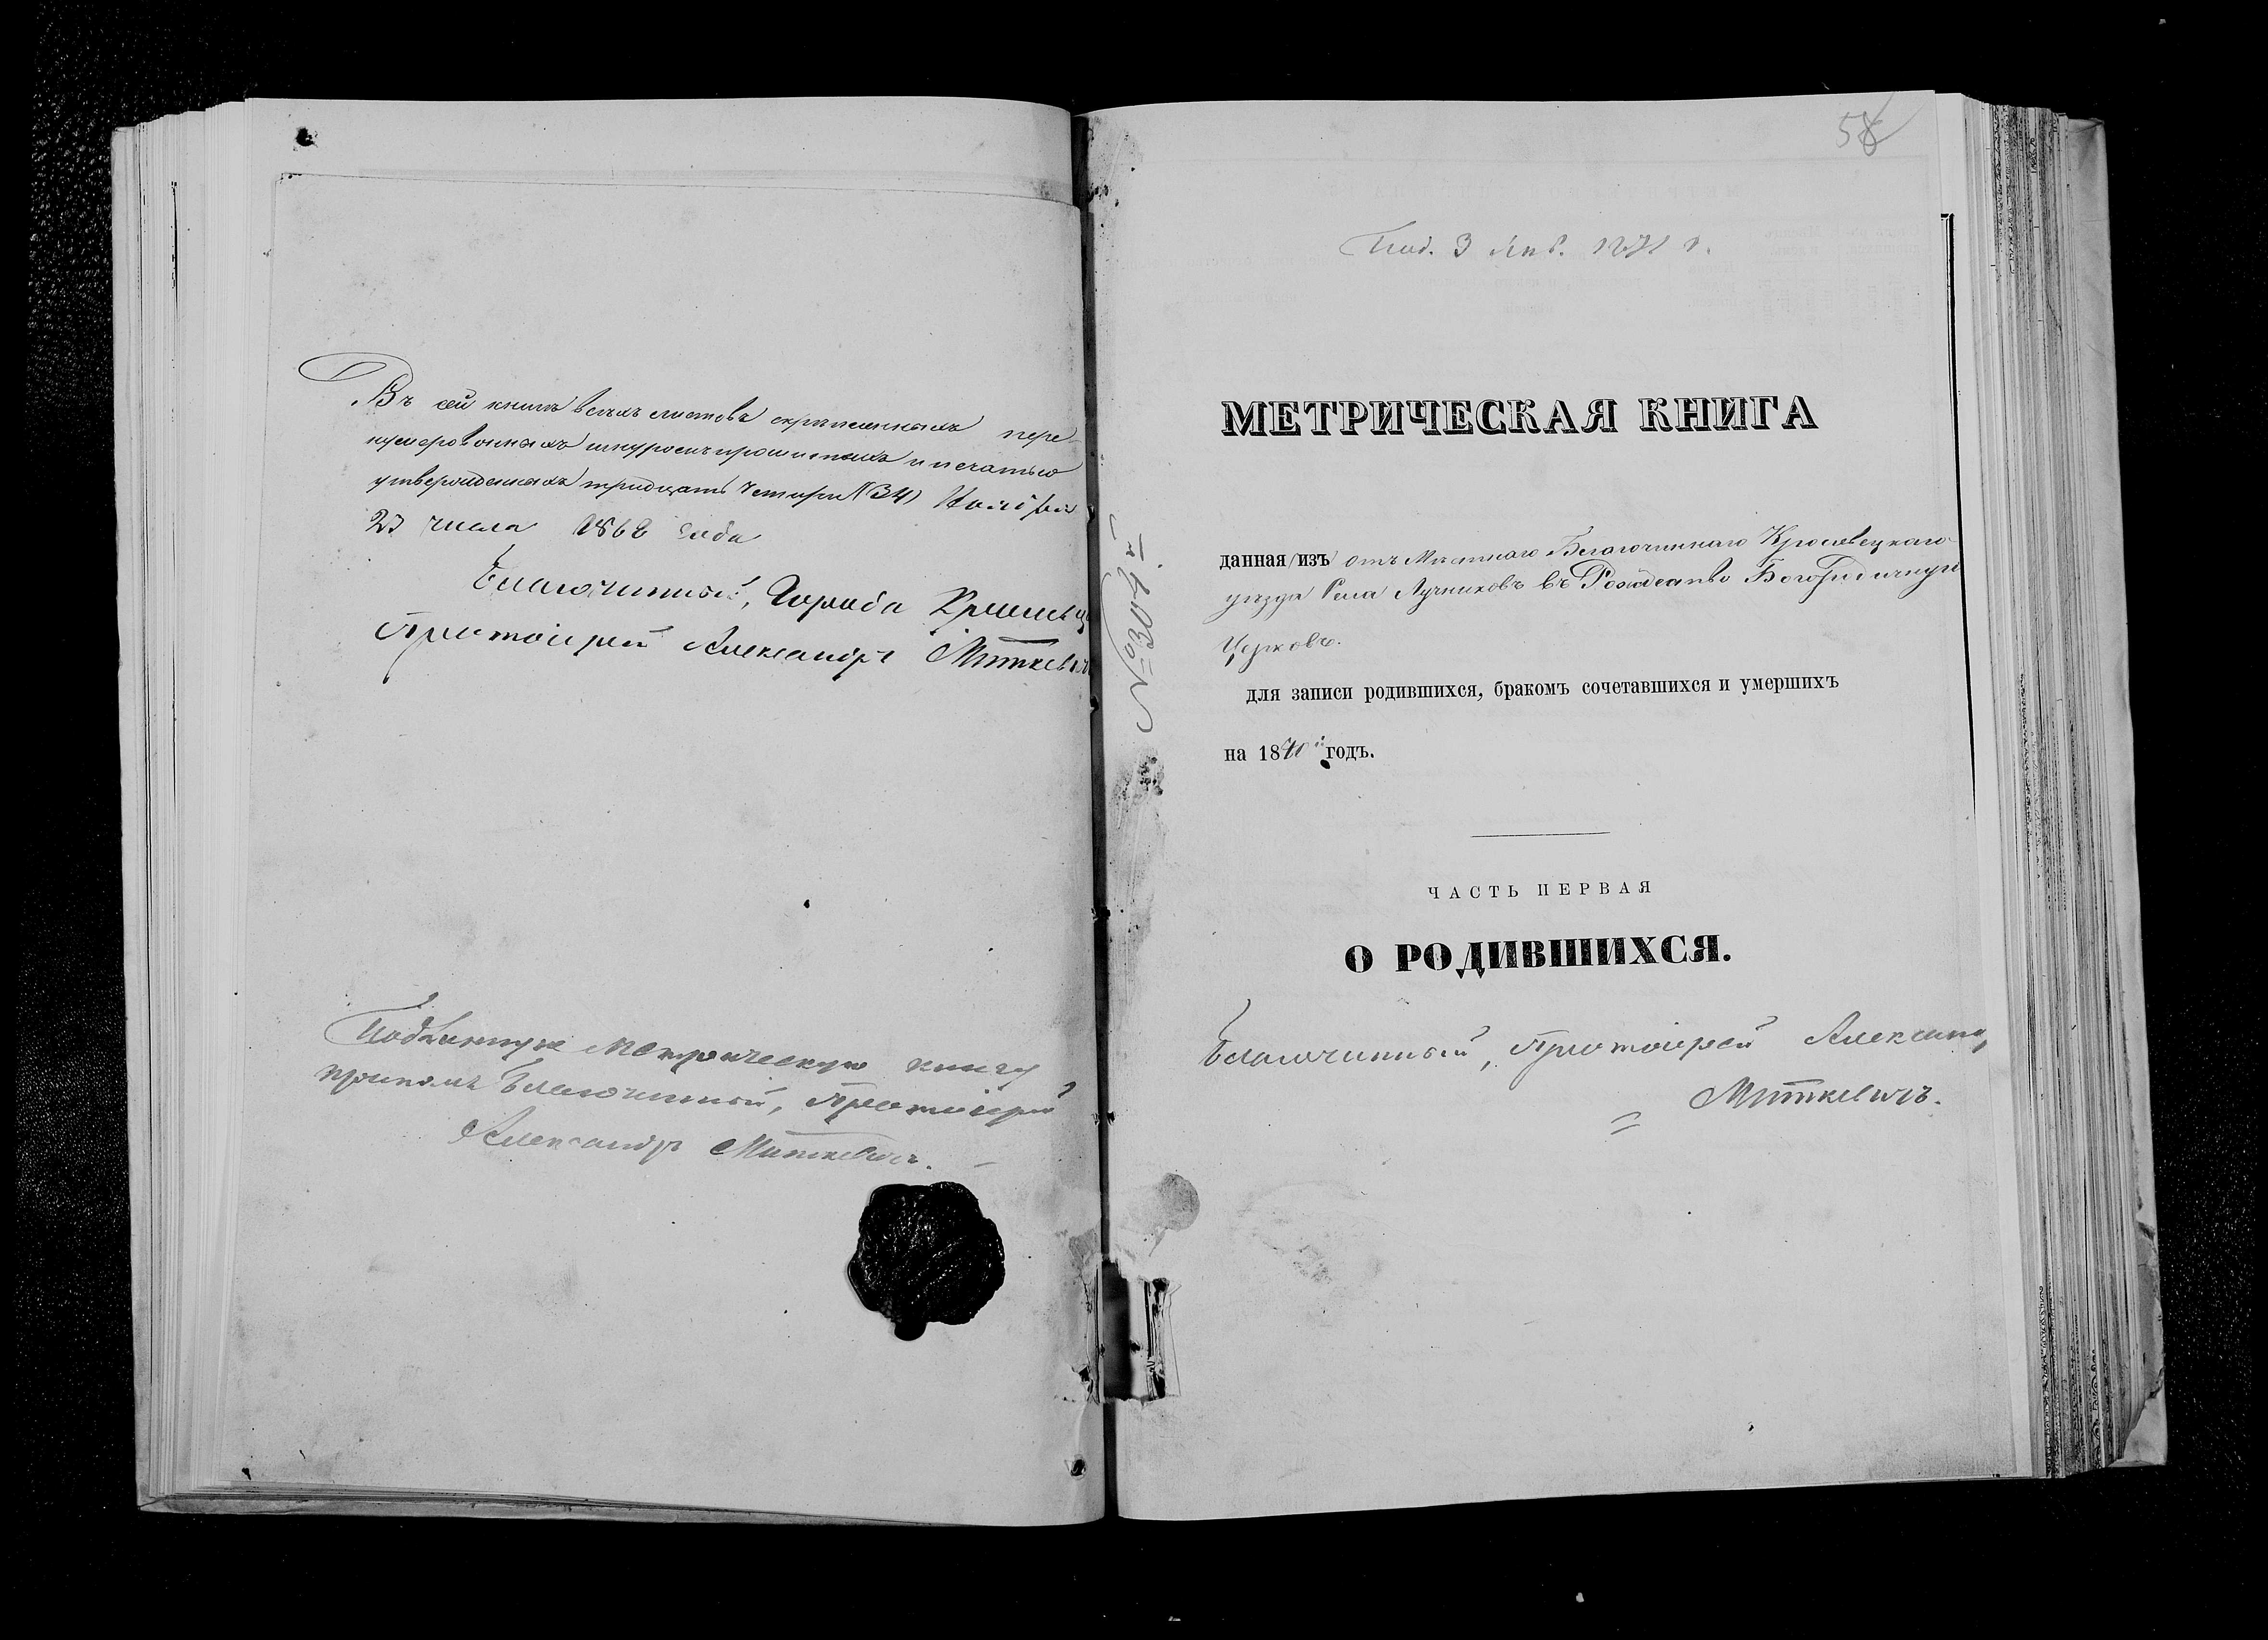 Въ сей книгѣ всехъ листовъ скрѣпленныхъ пере-
нумерованныхъ шнуромъ прошитыхъ и печатью
утвержденныхъ тридцать четыри №34) Ноября
23 числа 1868 года
Благочинный, Города Кролевца
Протоіерей Александръ Миткевичъ
Метрическую книгу
Благочинный, Протоіерей
Александръ Миткевичъ.
58
3 Янв. 1871 г.
№304й
МЕТРИЧЕСКАЯ КНИГА
данная изъ отъ Мѣстнаго Благочиннаго Кролевецкаго
уѣзда Села Лучниковъ въ Рождество Богородичную
Церковъ.
для записи родившихся, бракомъ сочетавшихся и умершихъ
на 1870й годъ.
ЧАСТЬ ПЕРВАЯ
О РОДИВШИХСЯ.
Благочинный, Протоіерей Александръ
Миткевичъ.